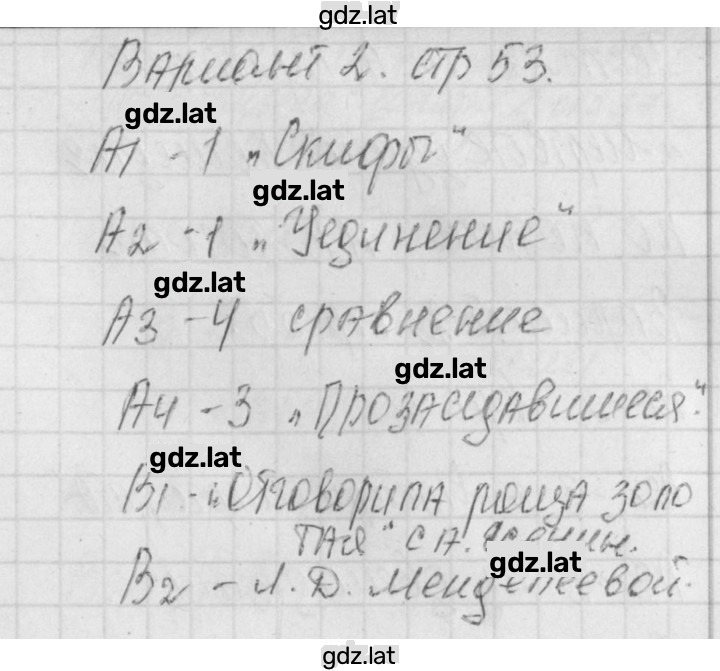 gdz.lat
Вариант 2. стр 53.
gdz.lat
А1 - 1 „Скифы"
gdz.lat
А2 - 1 „Уединение"
gdz.lat
А3 - 4 сравнение
gdz.lat
А4 - 3 „Прозаседавшиеся".
gdz.lat
В1 - „Отговорила роща золо
тая" С А.
gdz.lat
В2 - Л. Д. Менделеевой.
gdz.lat